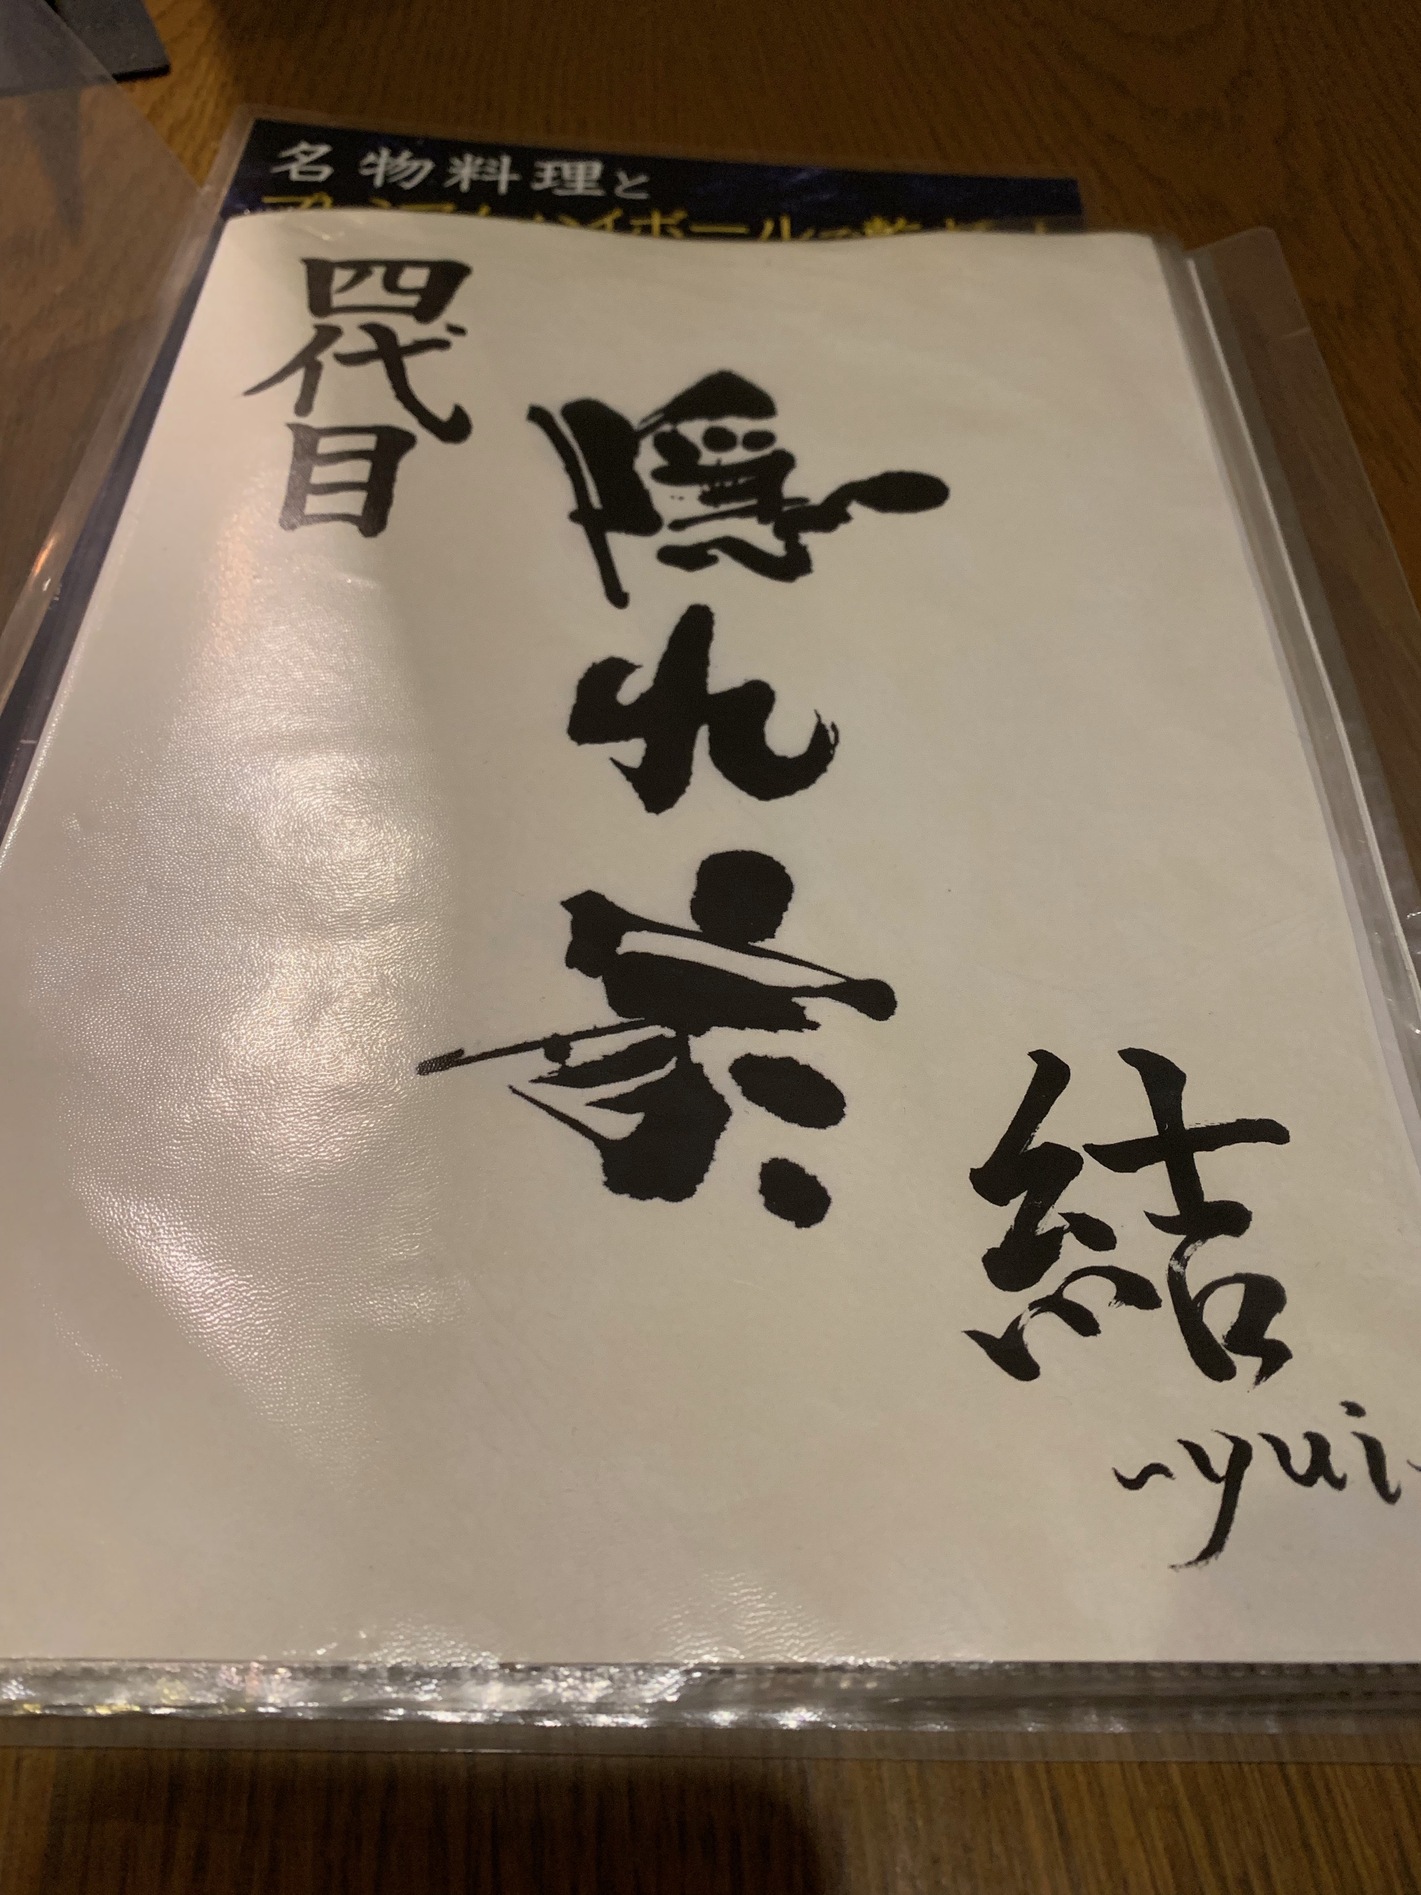 名物料理と
四代目
隠れ家
結
-yui-